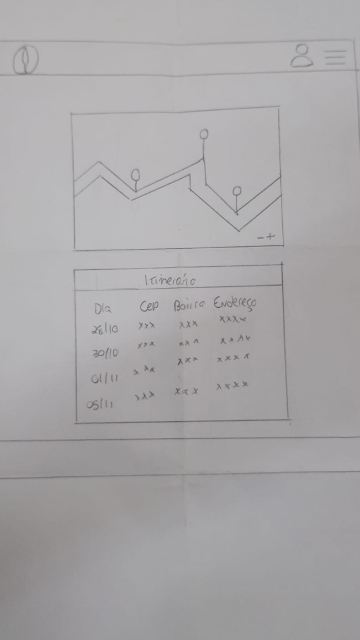 - +
Itinerário
Dia Cep Bairro Endereço
28/10 xxx xxx xxxx
30/10 xxx xxx xxxx
01/11 xxx xxx xxxx
05/11 xxx xxx xxxx